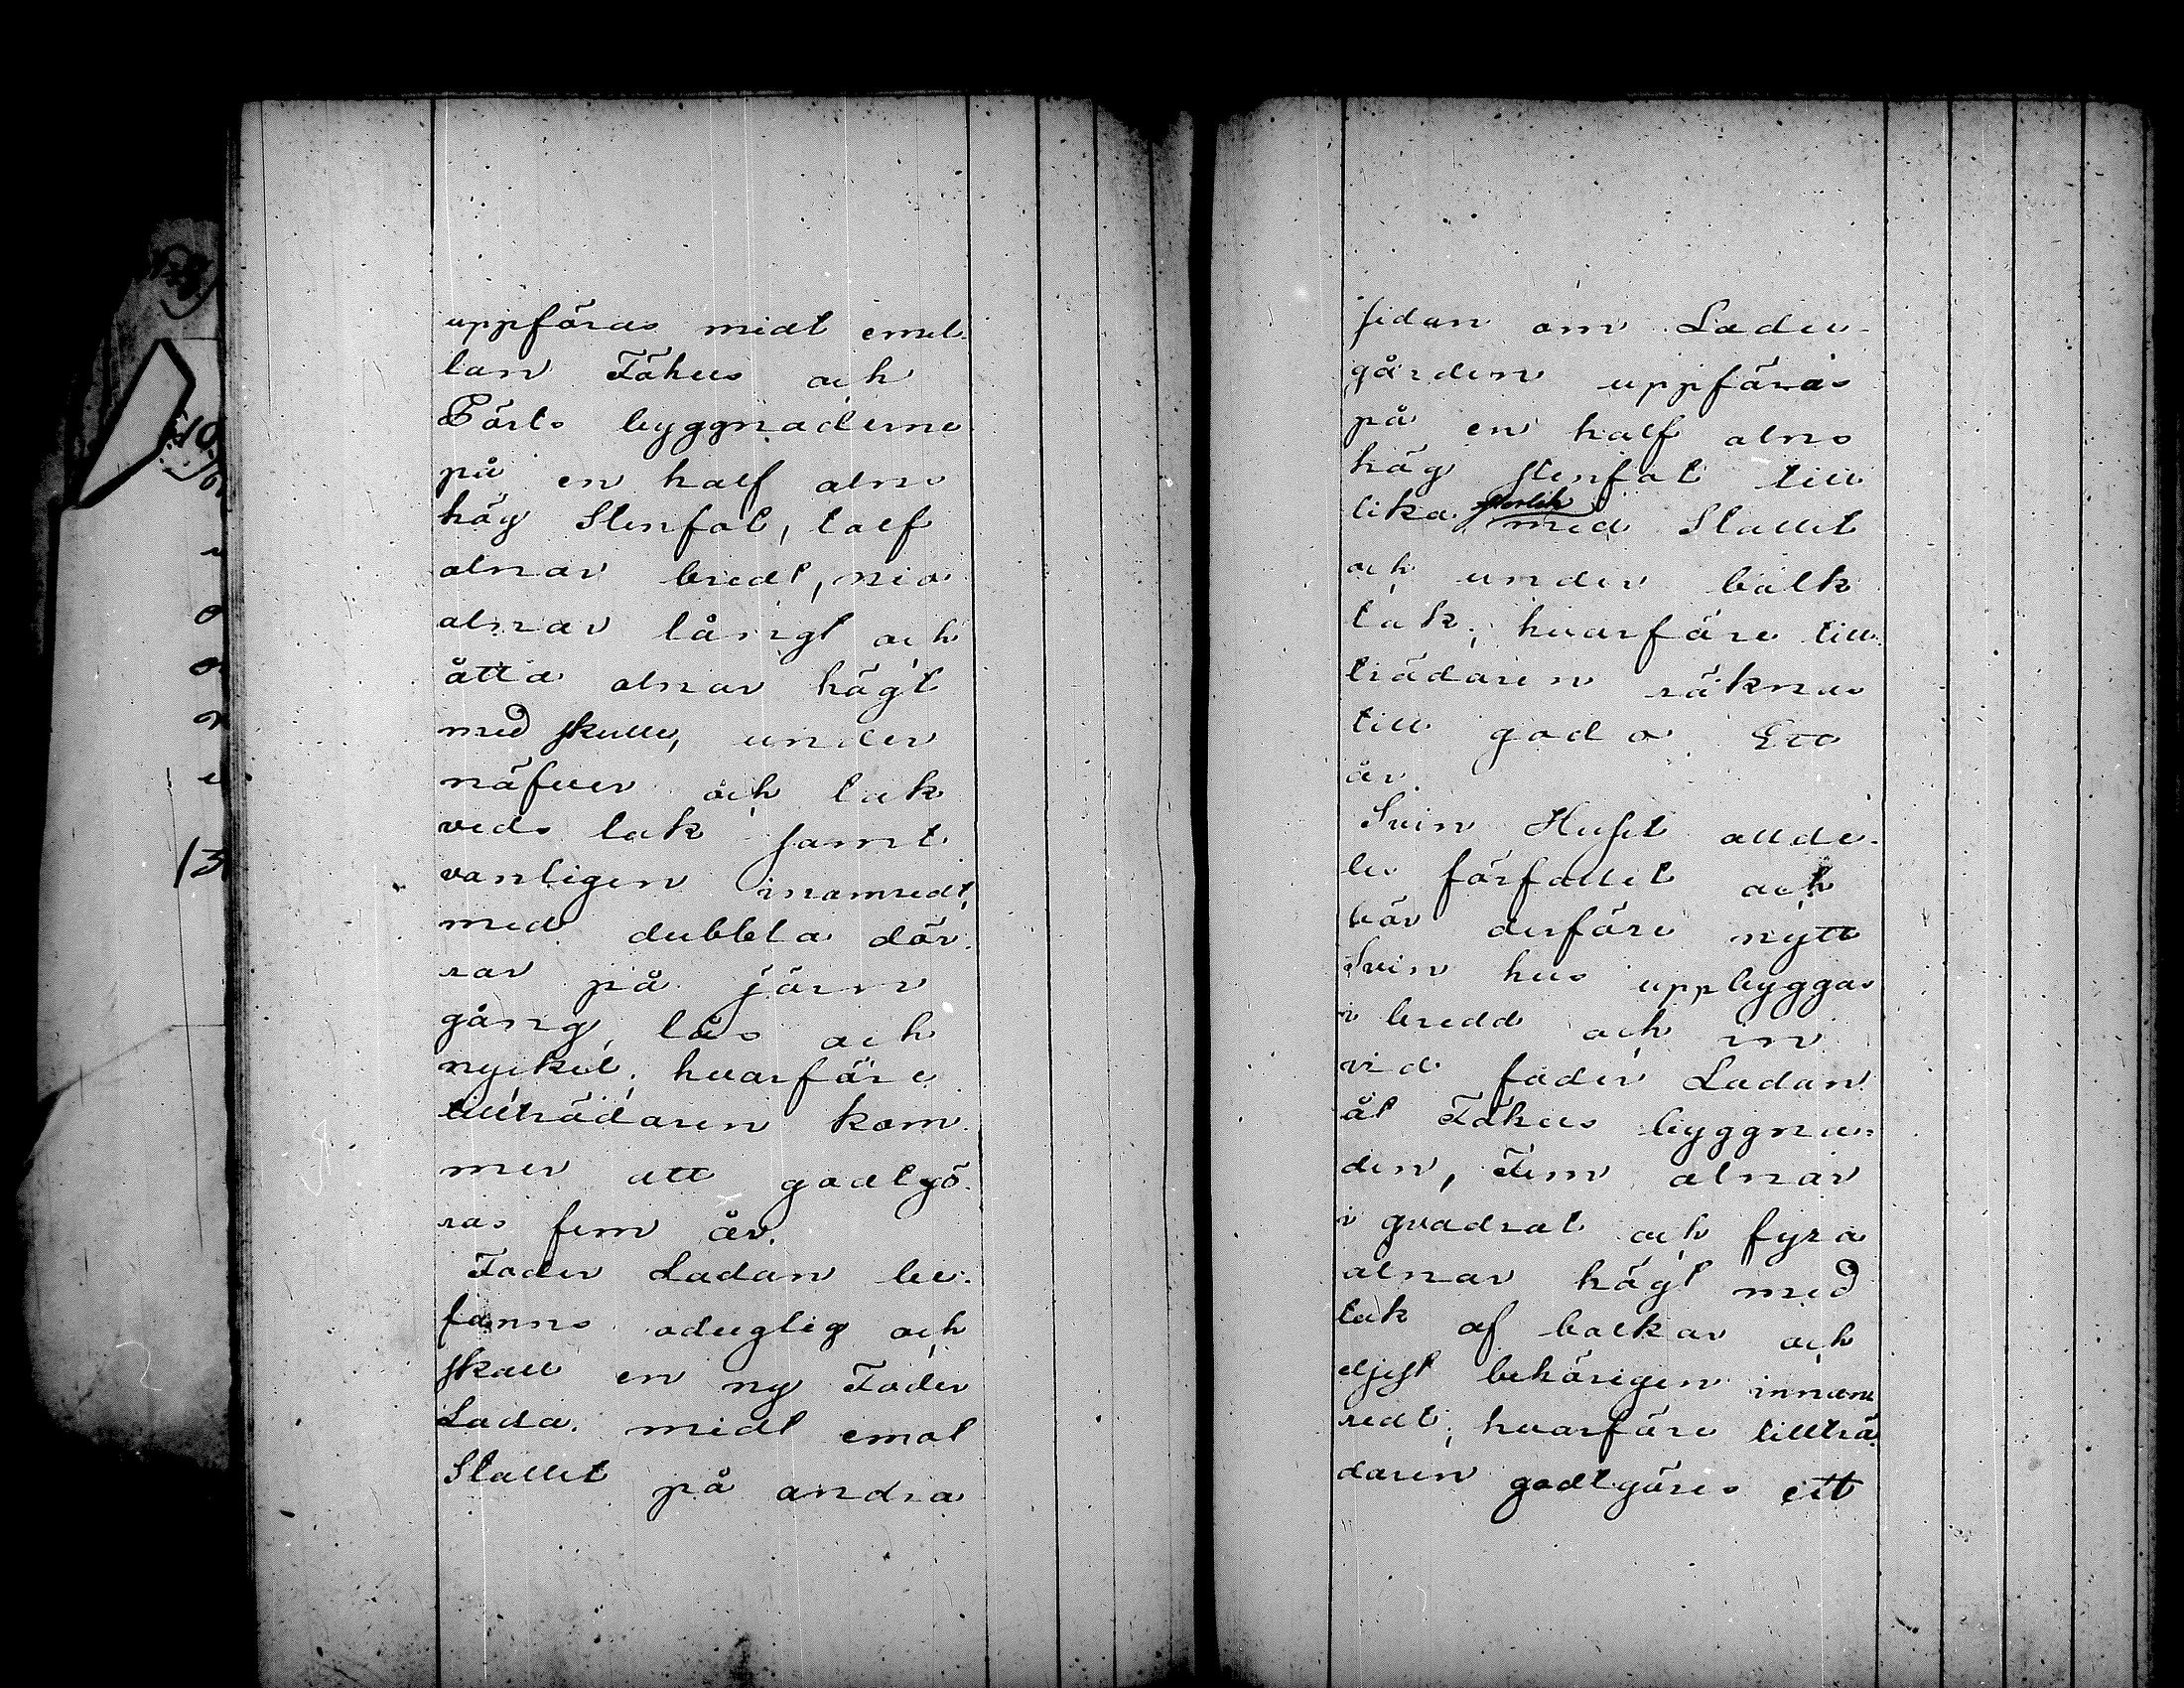 uppföras midt emel-
lan Fähus och
Pörts byggnaderne
på en half alns
hög Stenfot, tolf
alnar bredt, nio
alnar långt och
åtta alnar högt
med skulle, under
näfver och tak
veds tak samt
vanligen inomredt,
med dubbla dör-
rar på järn
gång, lås och
nyckel; hvarföre
tillträdaren kom-
mer att godtgö-
ras fem år.
Foder Ladan be-
fanns oduglig och
skall en ny Foder
Lada midt emot
Stallet på andra
sidan om Ladu-
gården uppföras
på en half alns
hög stenfot till
lika storlek med Stallet
och under balk
tak; hvarföre till-
trädaren räknas
till godo Ett
år.
Svin Huset allde-
les förfallet och
bör derföre nytt
Svin hus uppbyggas
i bredd och in
vid foder Ladan
åt Fähus byggna-
den, Fem alnar
i quadrat och fyra
alnar högt med
tak af balkar och
eljest behörigen innom
redt; hvarföre tillträ-
daren godtgöres ett